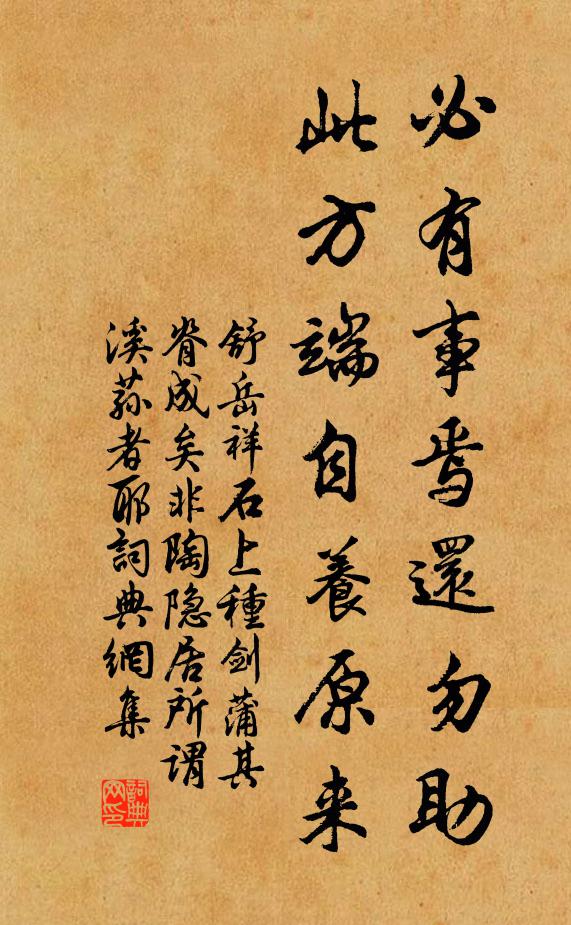 必有事焉還勿助
此方端自養原来
舒岳祥石上種剑蒲其
脊成矣非陶隐居所谓
溪荪者耶詞典網集
詞典
网印